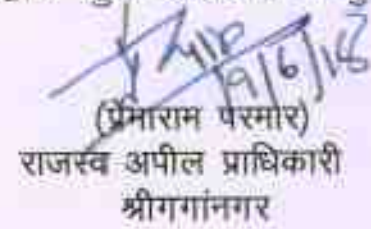 19/6/18
(प्रेमाराम परमार)
राजस्व अपील प्राधिकारी
श्रीगगांनगर